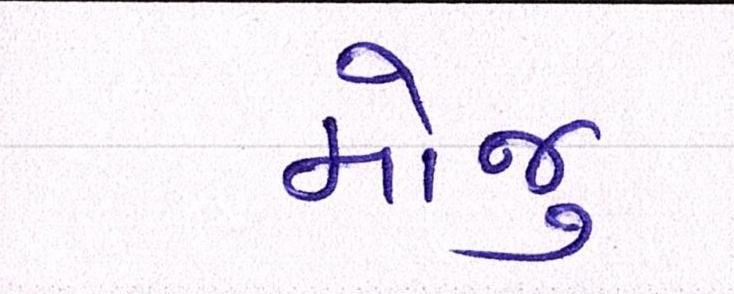 મોજુ